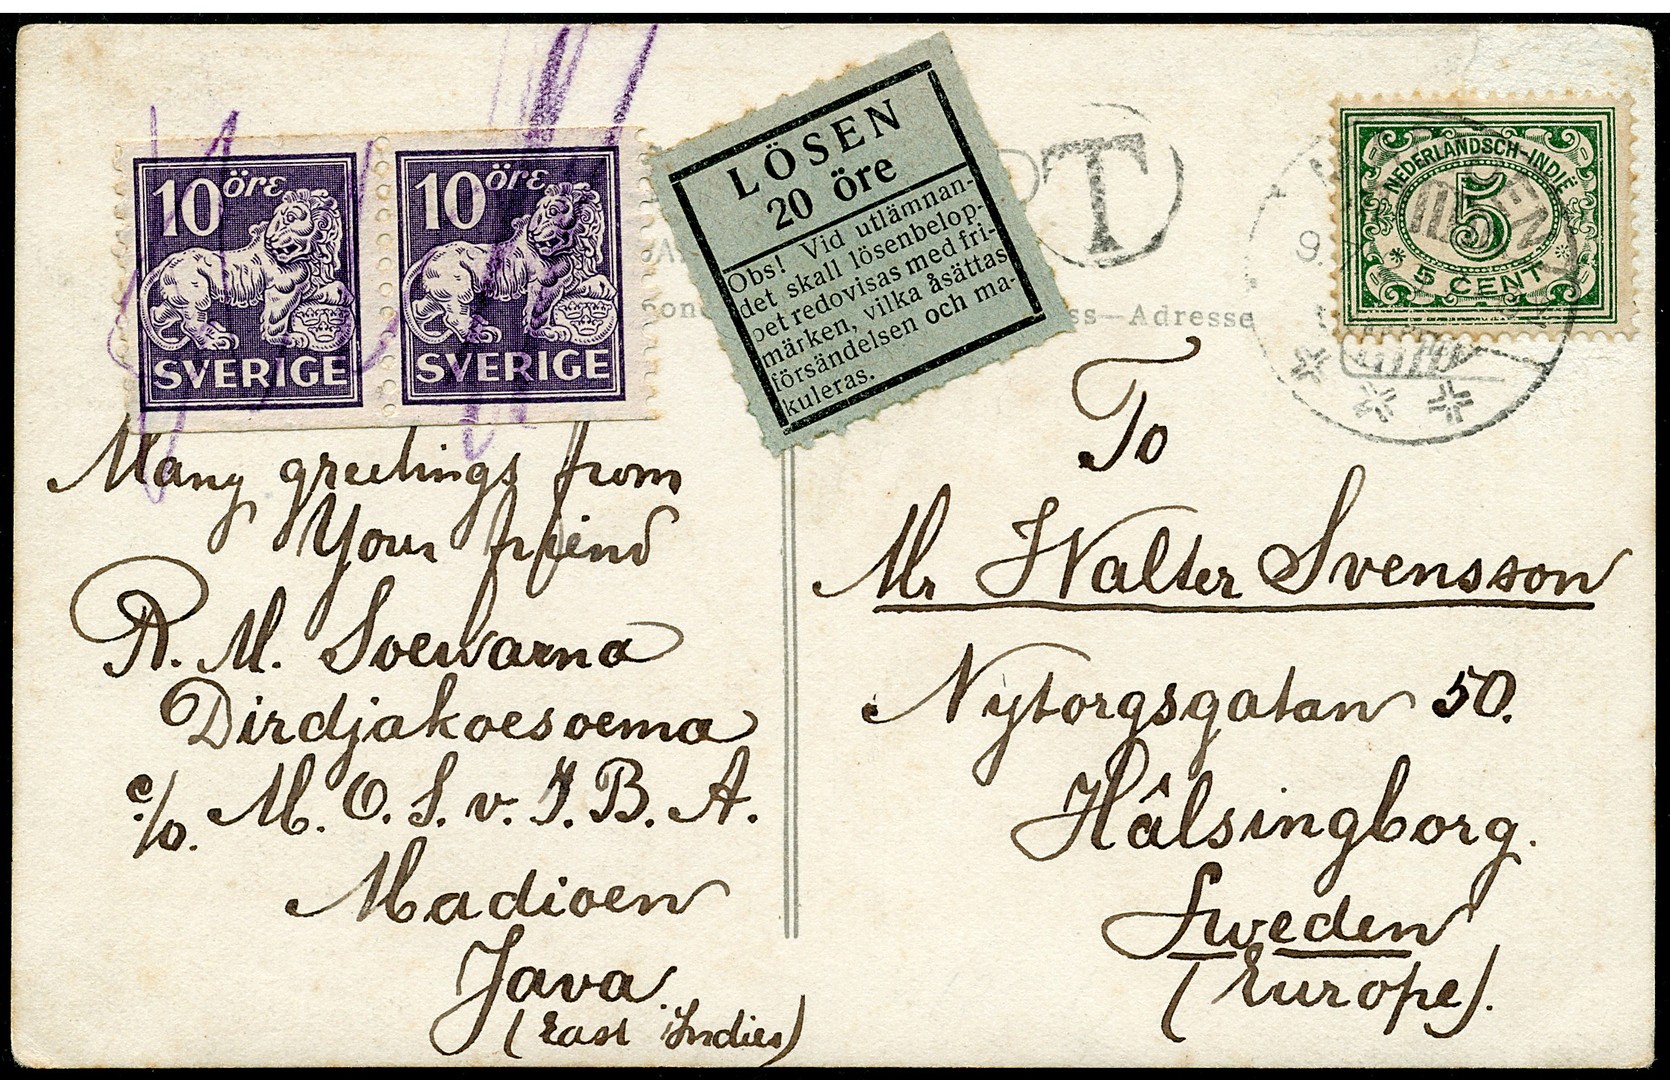 10 öre
SVERIGE
10 öre
SVERIGE
LÖSEN
20 öre
Obs! Vid utlämnan-
det skall lösenbelop-
pet redovisas med fri-
märken, vilka åsättas
försändelsen och ma-
kuleras.
T
NEDERLANDSCH-INDIË
5
5 CENT
ss—Adresse
Many greetings from
Your friend
R. M. Soewarna
Dirdjakoesoema
c/o. M. O. S. v. I. B. A.
Madioen
Java.
(East Indies)
To
Mr Walter Svensson
Nytorgsgatan 50.
Hâlsingborg.
Sweden
(Europe).